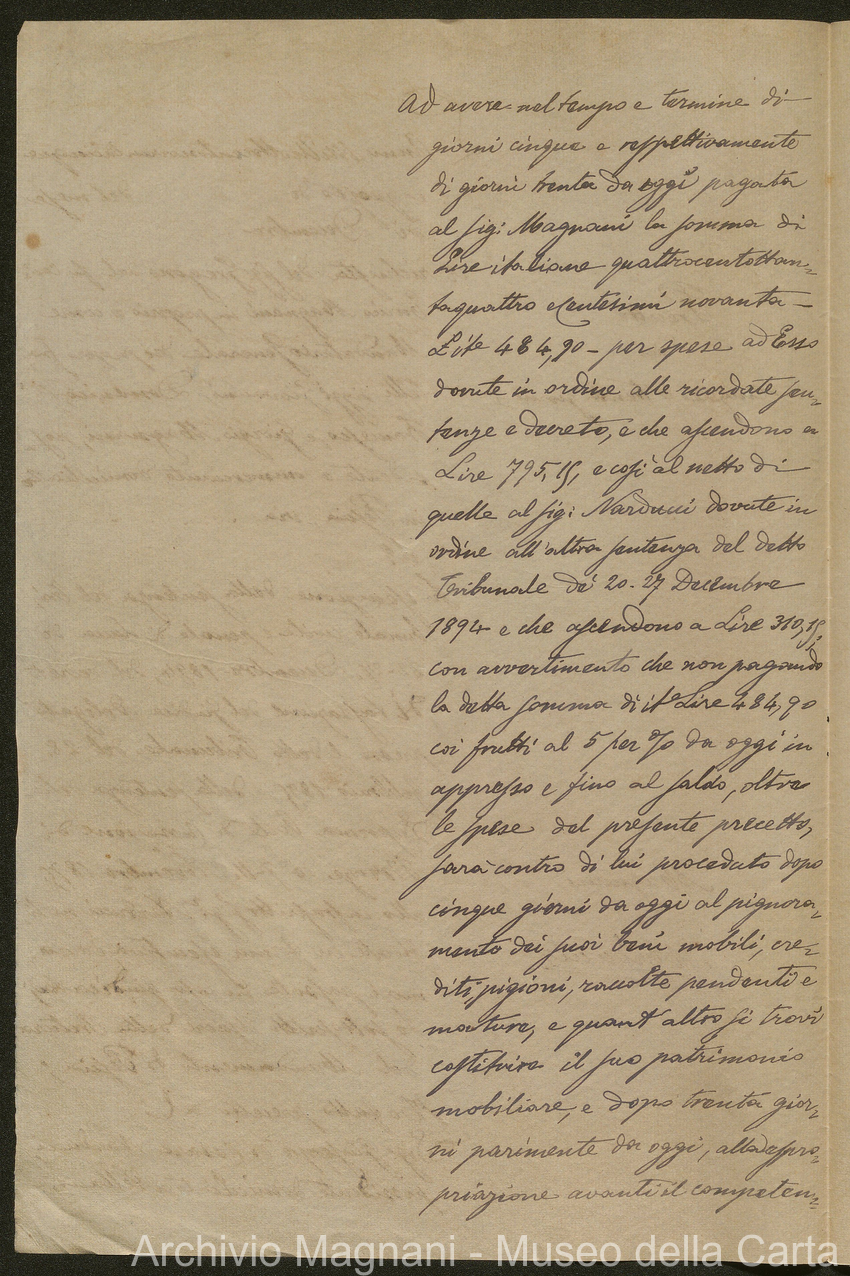 Ad avere nel tempo e termine di
giorni cinque e respettivamente
di giorni trenta da oggi pagata
al Sig: Magnani la somma di
Lire italiane quattrocentottan=
taquattro e Centesimi novanta —
Lire 484,90 - per spese ad Esso
dovute in ordine alle ricordate sen=
tenze e decreto, e che ascendono a
Lire 795,15, e così al netto di
quelle al Sig: Narducci dovute in
ordine all'altra sentenza del detto
Tribunale de' 20-27 Decembre
1894 e che ascendono a Lire 310,15;
con avvertimento che non pagando
la detta somma di it.e Lire 484,90
coi frutti al 5 per % da oggi in
appresso e fino al saldo, oltre
le spese del presente precetto,
sarà contro di lui proceduto dopo
cinque giorni da oggi al pignora=
mento dei suoi beni mobili, cre=
diti, pigioni, raccolte pendenti e
mature, e quant'altro si trovi
costituire il suo patrimonio
mobiliare, e dopo trenta gior=
ni parimente da oggi, alla espro=
priazione avanti il competen=
Archivio Magnani - Museo della Carta